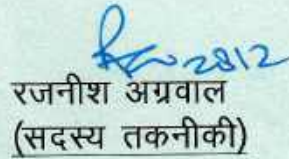 2812
रजनीश अग्रवाल
(सदस्य तकनीकी)